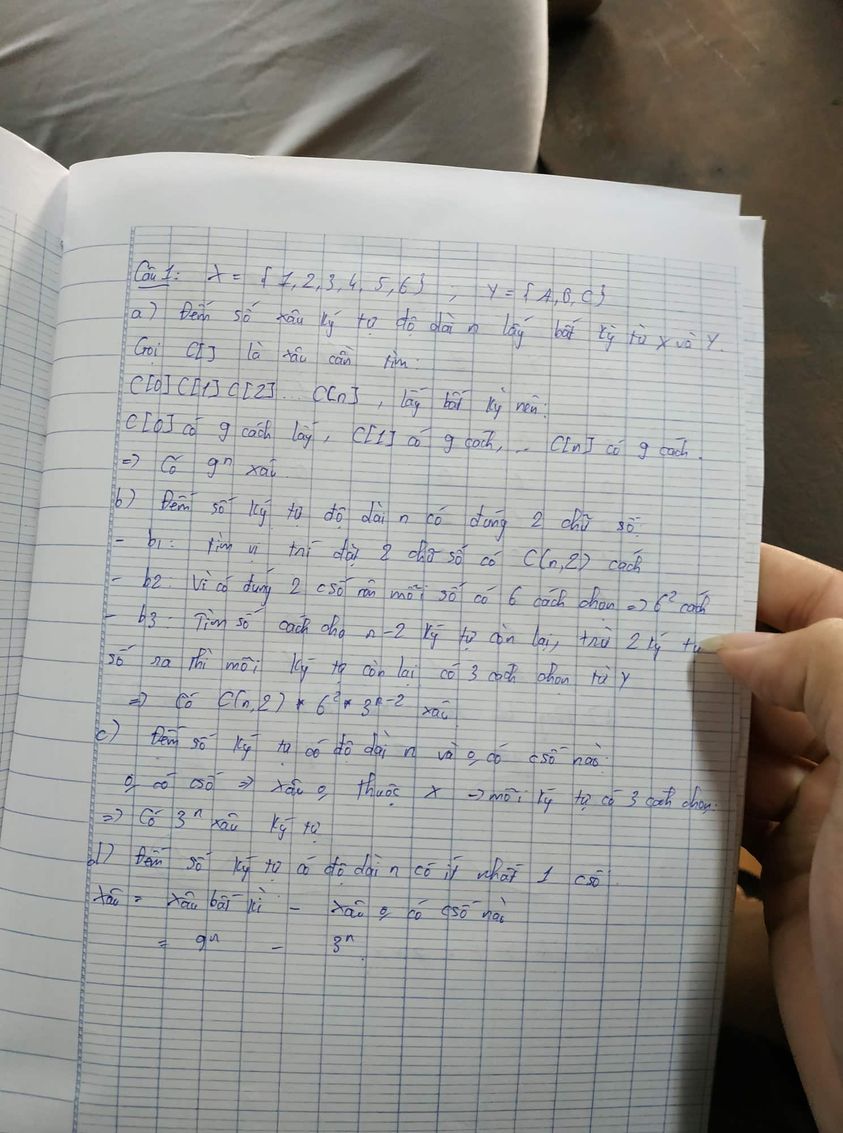 Câu 1: X = {1,2,3,4,5,6} ; Y = {A,B,C}
a) Đếm số xâu ký tự độ dài n lấy bất kỳ từ X và Y.
Gọi C[] là xâu cần tìm:
C[0]C[1]C[2]... C[n], lấy bất kỳ nên:
C[0] có 9 cách lấy, C[1] có 9 cách, .. C[n] có 9 cách.
=> Có 9ⁿ xâu
b) Đếm số ký tự độ dài n có đúng 2 chữ số:
- b1: Tìm vị trí đặt 2 chữ số có C(n,2) cách
- b2: Vì có đúng 2 csố nên mỗi số có 6 cách chọn => 6² cách
- b3: Tìm số cách cho n-2 ký tự còn lại, trừ 2 ký tự
số ra thì mỗi ký tự còn lại có 3 cách chọn từ Y
=> Có C(n,2) * 6² * 3ⁿ⁻² xâu
c) Đếm số ký tự có độ dài n và o, có csố nào:
o, có csố => xâu o, thuộc X -> mỗi ký tự có 3 cách chọn.
=> Có 3ⁿ xâu ký tự
d) Đếm số ký tự có độ dài n có ít nhất 1 csố.
Xâu = Xâu bất kì - xâu o, có csố nào
= 9ⁿ - 3ⁿ